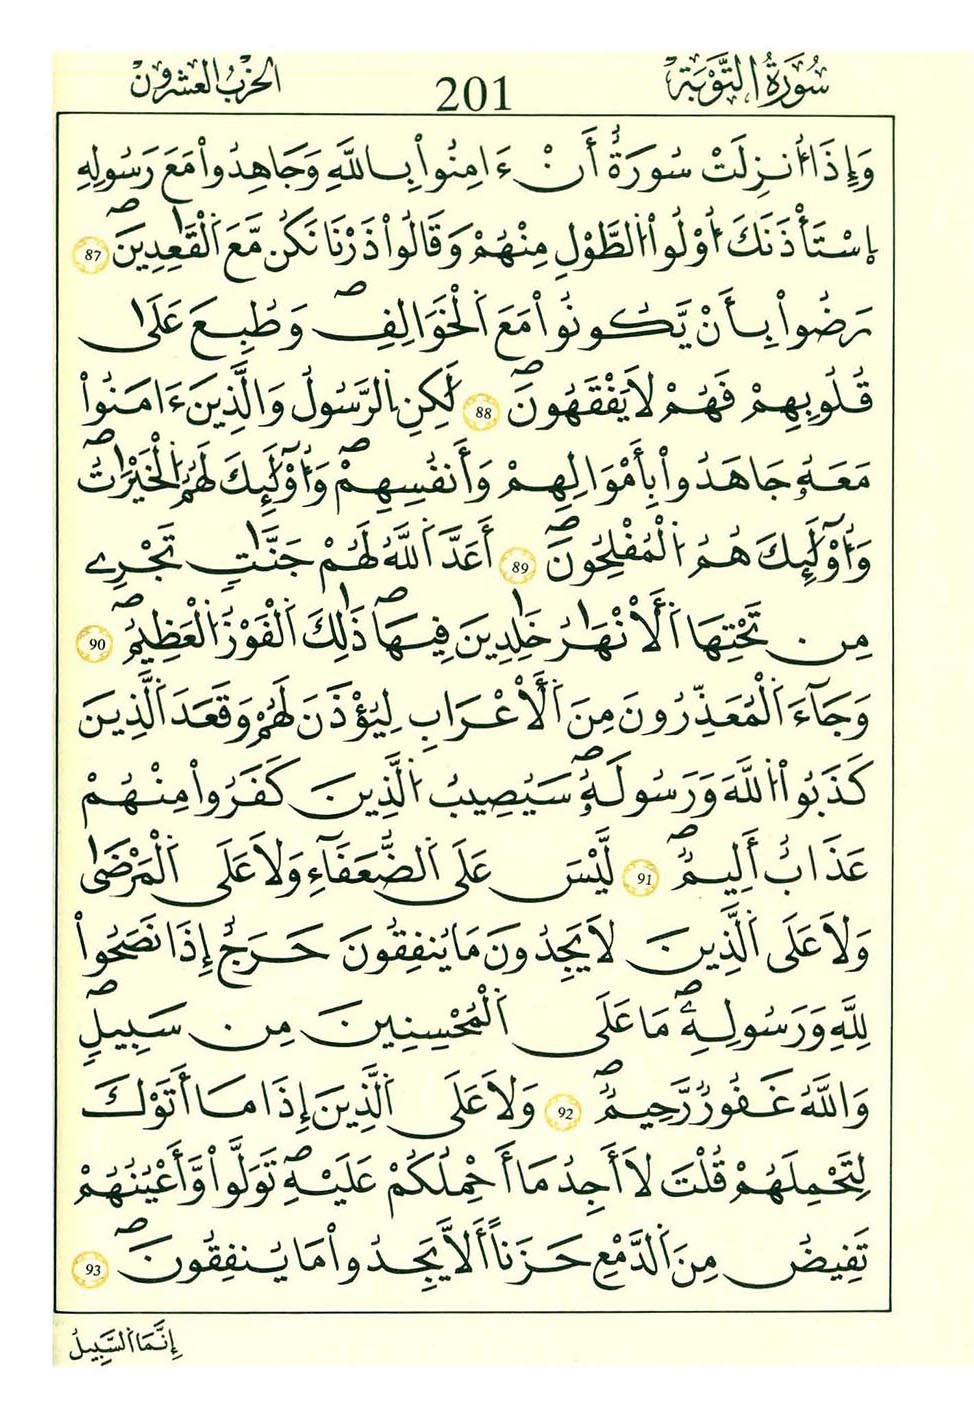 سُورَةُ التَّوْبَةِ 201 الحِزْبُ العِشْرُونَ
وَإِذَا أُنزِلَتْ سُورَةٌ أَنْ ءَامِنُواْ بِاللَّهِ وَجَاهِدُواْ مَعَ رَسُولِهِ
اِسْتَأْذَنَكَ أُوْلُواْ الطَّوْلِ مِنْهُمْ وَقَالُواْ ذَرْنَا نَكُن مَّعَ الْقَٰعِدِينَۖ 87
رَضُواْ بِأَنْ يَّكُونُواْ مَعَ الْخَوَالِفِۖ وَطُبِعَ عَلَىٰ
قُلُوبِهِمْ فَهُمْ لَا يَفْقَهُونَۖ 88 لَٰكِنِ الرَّسُولُ وَالَّذِينَ ءَامَنُواْ
مَعَهُۥ جَاهَدُواْ بِأَمْوَالِهِمْ وَأَنفُسِهِمْۖ وَأُوْلَٰٓئِكَ لَهُمُ الْخَيْرَٰتُۖ
وَأُوْلَٰٓئِكَ هُمُ الْمُفْلِحُونَۖ 89 أَعَدَّ اللَّهُ لَهُمْ جَنَّٰتٍ تَجْرِے
مِن تَحْتِهَا الْأَنْهَٰرُ خَٰلِدِينَ فِيهَاۖ ذَٰلِكَ الْفَوْزُ الْعَظِيمُۖ 90
وَجَآءَ الْمُعَذِّرُونَ مِنَ الْأَعْرَابِ لِيُؤْذَنَ لَهُمْ وَقَعَدَ الَّذِينَ
كَذَبُواْ اللَّهَ وَرَسُولَهُۥۖ سَيُصِيبُ الَّذِينَ كَفَرُواْ مِنْهُمْ
عَذَابٌ أَلِيمٌۖ 91 لَّيْسَ عَلَى الضُّعَفَآءِ وَلَا عَلَى الْمَرْضَىٰ
وَلَا عَلَى الَّذِينَ لَا يَجِدُونَ مَا يُنفِقُونَ حَرَجٌ إِذَا نَصَحُواْ
لِلَّهِ وَرَسُولِهِۦۖ مَا عَلَى الْمُحْسِنِينَ مِن سَبِيلٍۖ
وَاللَّهُ غَفُورٌ رَّحِيمٌۖ 92 وَلَا عَلَى الَّذِينَ إِذَا مَا أَتَوْكَ
لِتَحْمِلَهُمْ قُلْتَ لَا أَجِدُ مَا أَحْمِلُكُمْ عَلَيْهِۖ تَوَلَّواْ وَّأَعْيُنُهُمْ
تَفِيضُ مِنَ الدَّمْعِ حَزَناً أَلَّا يَجِدُواْ مَا يُنفِقُونَۖ 93
إِنَّمَا السَّبِيلُ